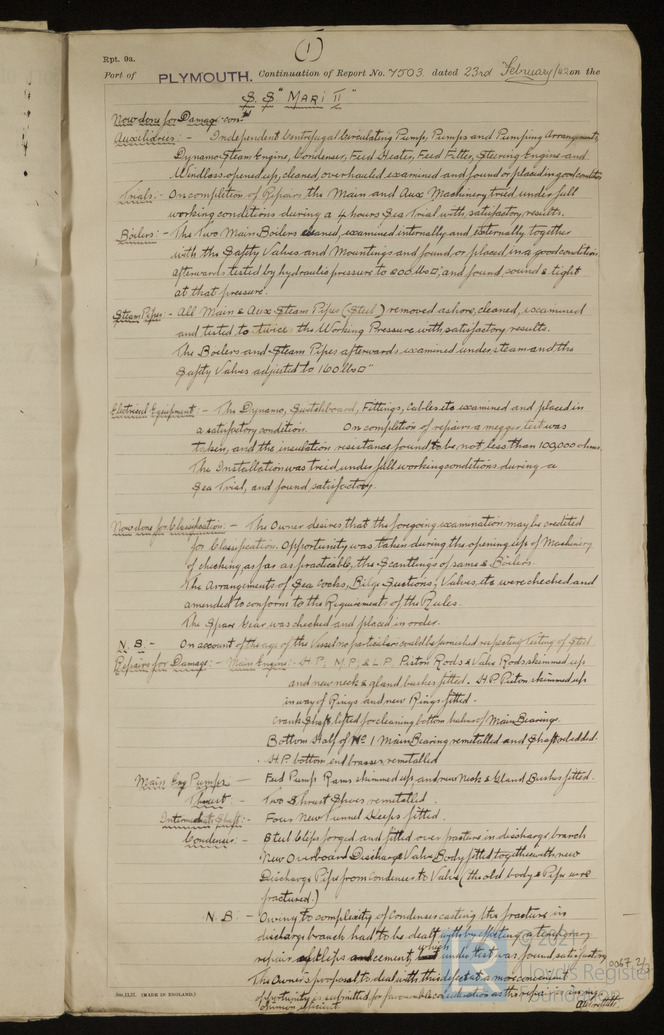 (1)
Rpt. 9a.
Port of PLYMOUTH. Continuation of Report No. 7503 dated 23rd February/42 on the
S.S "MARI II"
Now done for Damage con^td
Auxiliaries: - Independent Centrifugal Circulating Pump, Pumps and Pumping Arrangements,
Dynamo Steam Engine, Condenser, Feed Heater, Feed Filter, Steering Engine and
Windlass opened up, cleaned, overhauled examined and found or placed in good condition
Trials: - On completion of Repairs, the Main and Aux Machinery tried under full
working conditions during a 4 hours Sea Trial with satisfactory results.
Boilers: - The Two Main Boilers cleaned, examined internally and externally together
with the Safety Valves and Mountings and found or placed in a good condition,
afterwards tested by hydraulic pressure to lbs□", and found sound & tight
at that pressure.
Steam Pipes: - All Main & Aux Steam Pipes (Steel) removed ashore, cleaned, examined
and tested to twice the Working Pressure with satisfactory results.
The Boilers and Steam Pipes afterwards examined under steam and the
Safety Valves adjusted to 160 lbs□"
Electrical Equipment: - The Dynamo, Switchboard, Fittings, Cables etc examined and placed in
a satisfactory condition. On completion of repairs a megger test was
taken, and the insulation resistance found to be not less than 100,000 ohms.
The Installation was tried under full working conditions during a
Sea Trial, and found satisfactory.
Now done for Classification: - The Owner desires that the foregoing examination may be credited
for Classification. Opportunity was taken during the opening up of Machinery
of checking as far as practicable, the Scantlings of same & Boilers.
The Arrangements of Sea Cocks, Bilge Suctions, Valves, etc were checked and
amended to conform to the Requirements of the Rules.
The Spare Gear was checked and placed in order.
N.B. - On account of the age of the Vessel no particulars could be furnished respecting testing of steel
Repairs for Damage: - Main Engine: - H.P., M.P., & L.P. Piston Rods & Valve Rods skimmed up
and new neck & gland bushes fitted. H.P Piston skimmed up
in way of Rings and new Rings fitted.
Crank Shaft lifted for cleaning bottom halves of Main Bearings.
Bottom Half of No 1 Main Bearing remetalled and Shaft rebedded.
H.P. bottom end brasses remetalled
Main Eng Pumps - Feed Pump Rams skimmed up, and new Neck & Gland Bushes fitted.
Thrust - Two Thrust Shoes remetalled.
Intermediate Shaft: - Four New Tunnel Keeps fitted.
Condenser - Steel Clips forged and fitted over fracture in discharge branch
New Overboard Discharge Valve Body fitted together with new
Discharge Pipe from Condenser to Valve (the old body & Pipe were
fractured.)
N.B - Owing to complexity of Condenser casting the fracture in
discharge branch had to be dealt with by effecting a temporary
repair of clips and cement, which under test was found satisfactory
The Owner's proposal to deal with this defect at a more convenient
opportunity is submitted for favourable consideration as the repair is in my
opinion efficient.
© 2021
Lloyd's Register
Foundation
(MADE IN ENGLAND.)